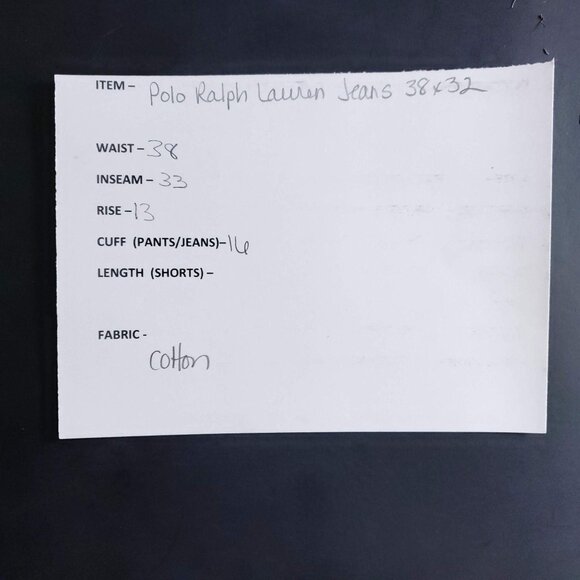 ITEM – Polo Ralph Lauren Jeans 38x32
WAIST – 38
INSEAM – 33
RISE – 13
CUFF (PANTS/JEANS)– 16
LENGTH (SHORTS) –
FABRIC -
Cotton